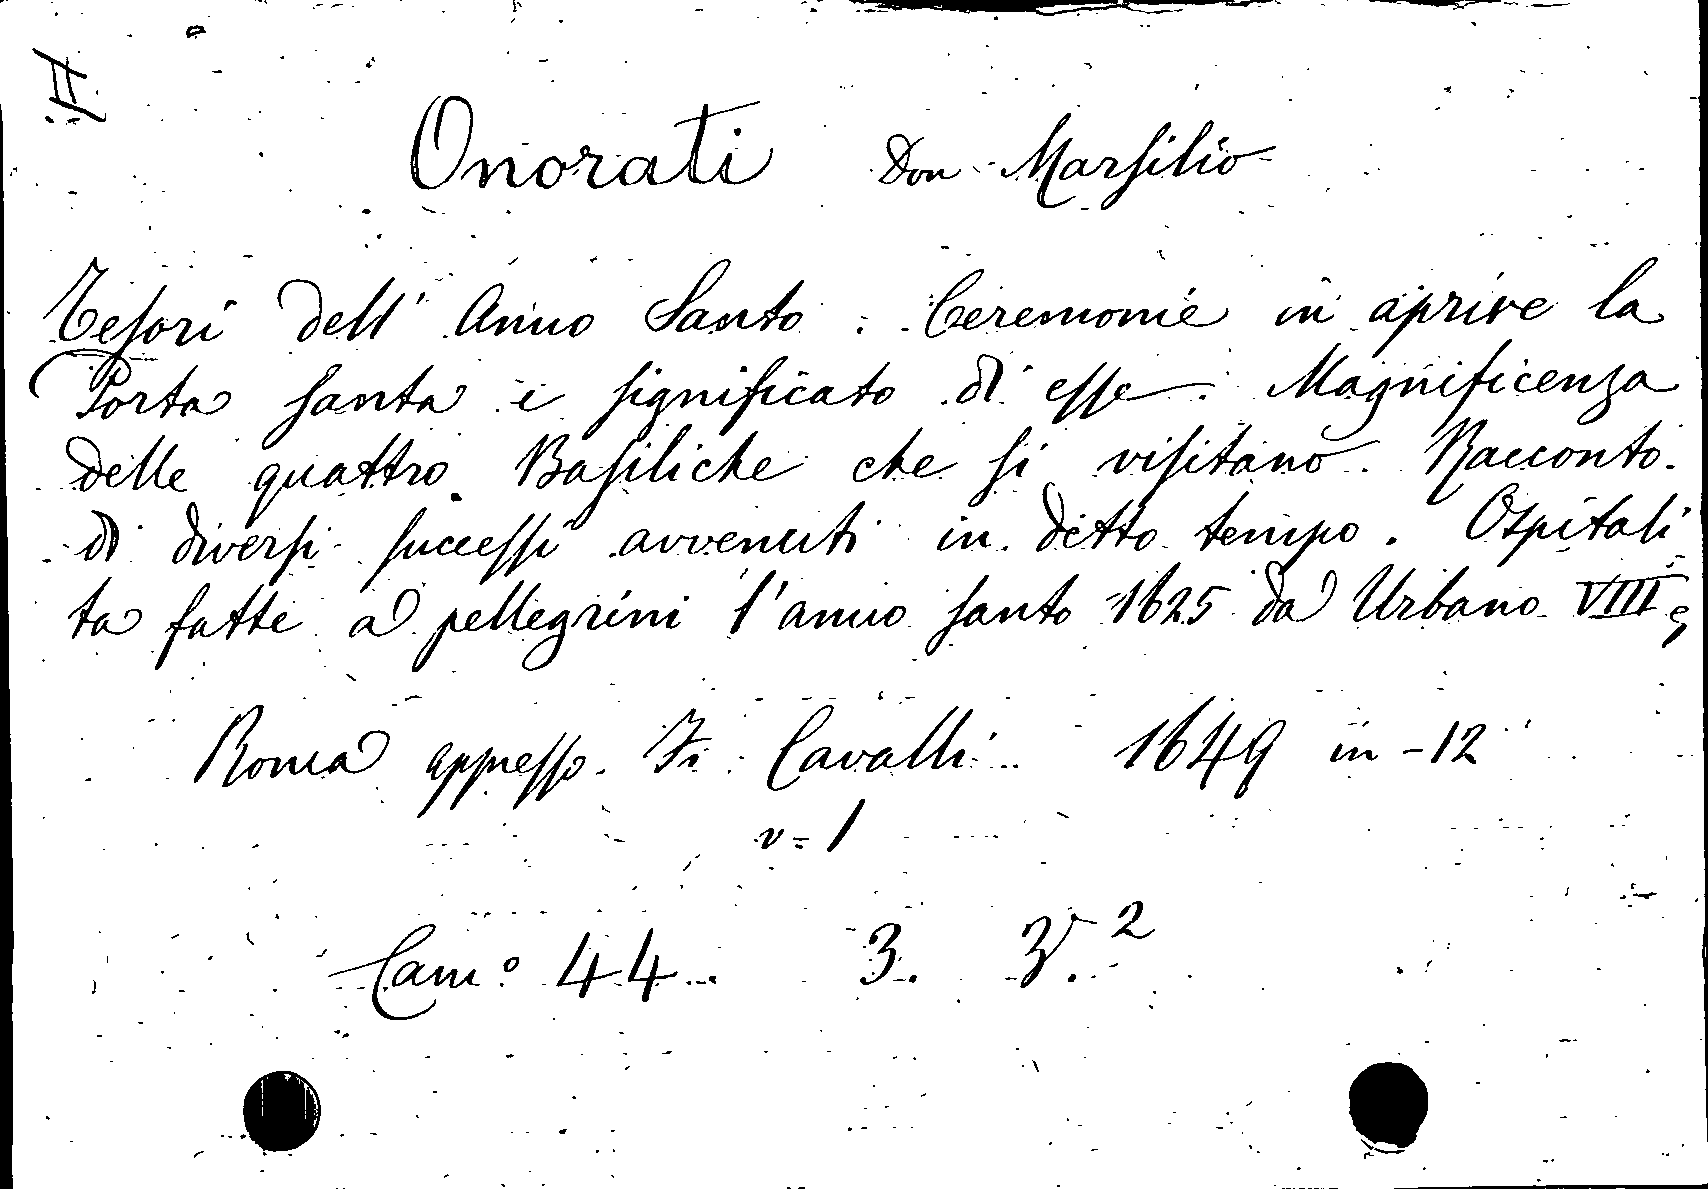 Onorati Don Marsilio
Tesori dell' Anno Santo. Ceremonie in aprire la
Porta santa e significato di esse. Magnificenza
delle quattro Basiliche che si visitano. Racconto
di diversi successi avvenuti in detto tempo. Ospitali
ta fatte a pellegrini l'anno santo 1625 da Urbano VIII
Roma appresso Fr Cavalli 1649 in-12
v=1
Cam.º 44. 3. 3.²